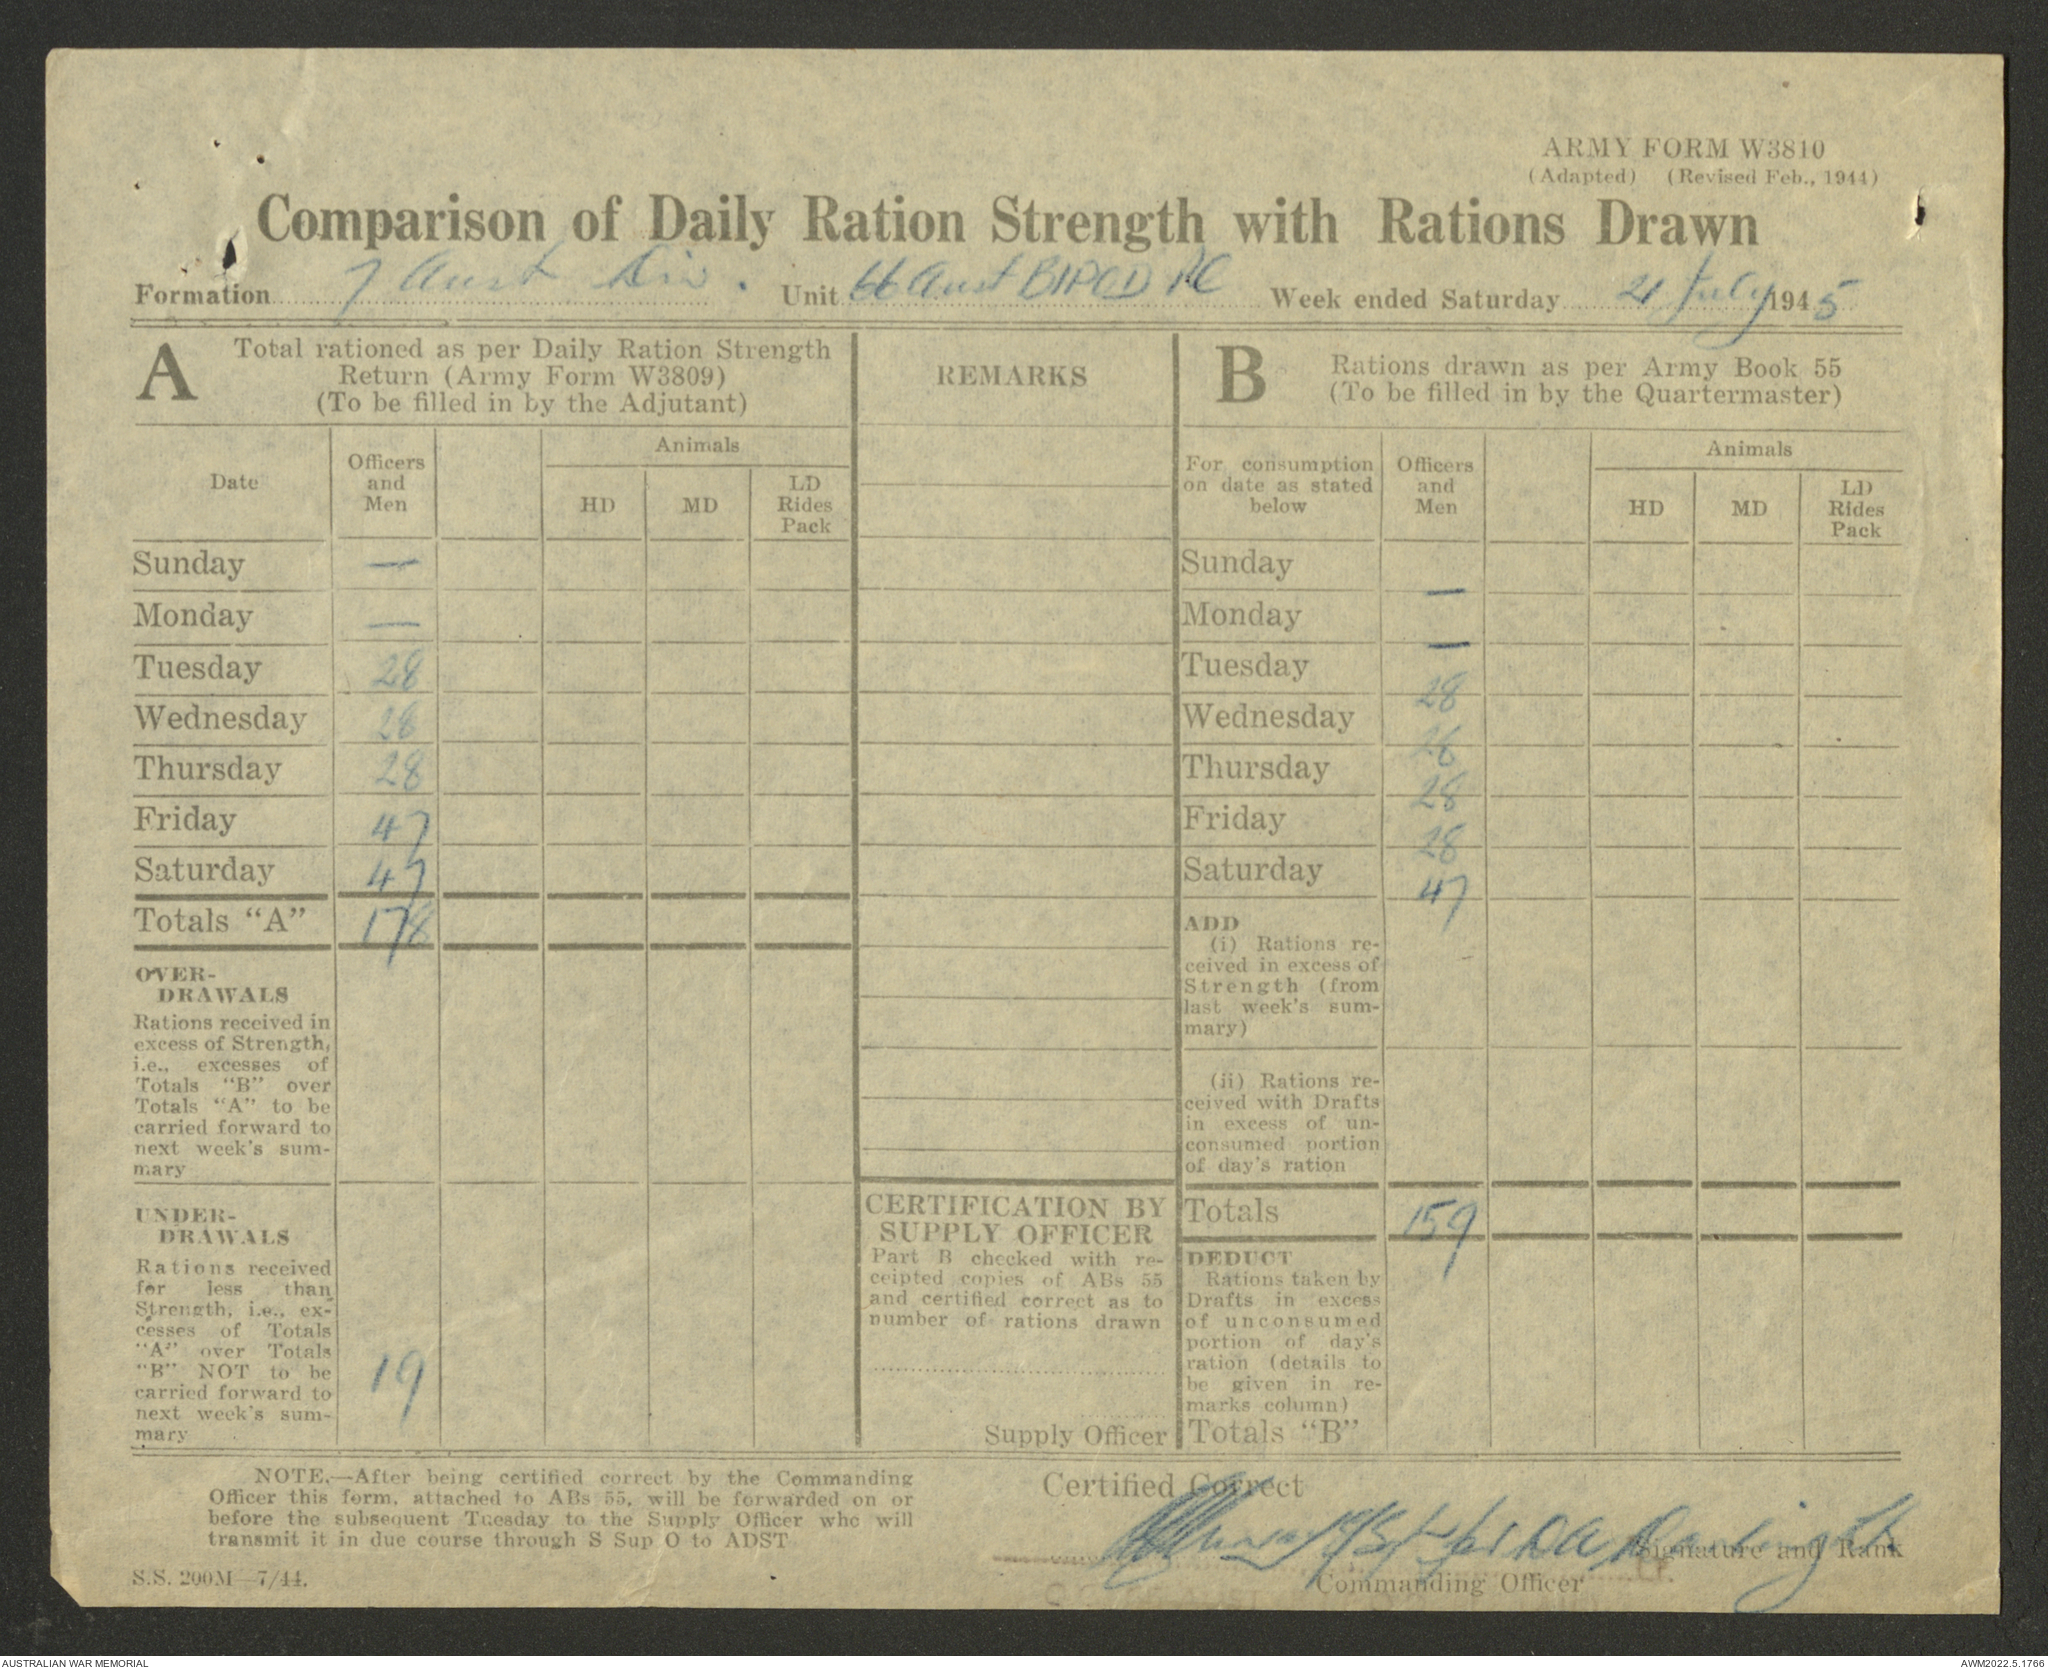 ARMY FORM W3810
(Adapted) (Revised Feb., 1944)
Comparison of Daily Ration Strength with Rations Drawn
Formation 7 Aust Div. Unit 66 Aust BIPOD Week ended Saturday 21 July 1945
A Total rationed as per Daily Ration Strength
Return (Army Form W3809)
(To be filled in by the Adjutant)
REMARKS
B Rations drawn as per Army Book 55
(To be filled in by the Quartermaster)
Date
Officers
and
Men
Animals
HD MD LD
Rides
Pack
For consumption
on date as stated
below
Officers
and
Men
Animals
HD MD LD
Rides
Pack
Sunday —
Monday —
Tuesday 28
Wednesday 28
Thursday 28
Friday 47
Saturday 47
Totals "A" 178
OVER-
DRAWALS
Rations received in
excess of Strength,
i.e., excesses of
Totals "B" over
Totals "A" to be
carried forward to
next week's sum-
mary
UNDER-
DRAWALS
Rations received
for less than
Strength, i.e., ex-
cesses of Totals
"A" over Totals
"B" NOT to be
carried forward to
next week's sum-
mary
19
CERTIFICATION BY
SUPPLY OFFICER
Part B checked with re-
ceipted copies of ABs 55
and certified correct as to
number of rations drawn
Supply Officer
Sunday —
Monday —
Tuesday 28
Wednesday 28
Thursday 28
Friday 28
Saturday 47
ADD
(i) Rations re-
ceived in excess of
Strength (from
last week's sum-
mary)
(ii) Rations re-
ceived with Drafts
in excess of un-
consumed portion
of day's ration
Totals 159
DEDUCT
Rations taken by
Drafts in excess
of unconsumed
portion of day's
ration (details to
be given in re-
marks column)
Totals "B"
NOTE.—After being certified correct by the Commanding
Officer this form, attached to ABs 55, will be forwarded on or
before the subsequent Tuesday to the Supply Officer who will
transmit it in due course through S Sup O to ADST
S.S. 200M—7/44.
Certified Correct
Signature and Rank
Commanding Officer
AUSTRALIAN WAR MEMORIAL
AWM2022.5.1766